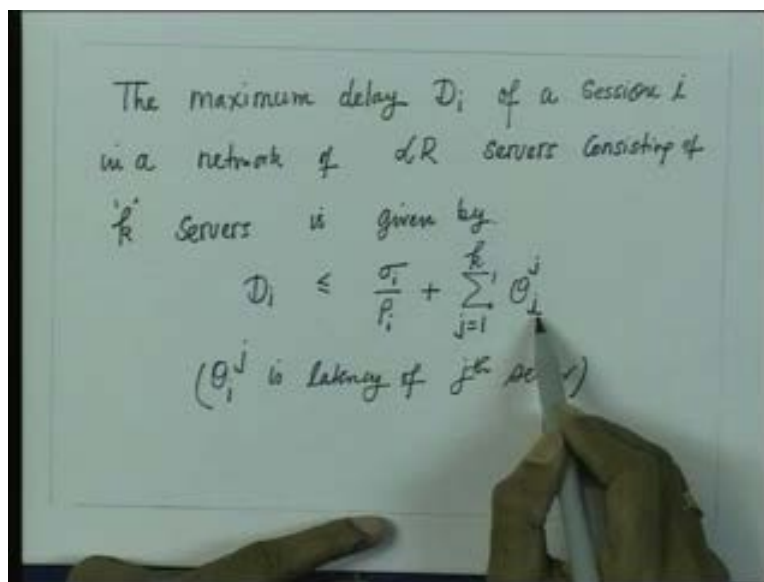 The maximum delay D_i of a session i
in a network of LR servers consisting of
'k' servers is given by
D_i ≤ σ_i/ρ_i + Σ_{j=1}^{k} θ_i^j
(θ_i^j is latency of jth